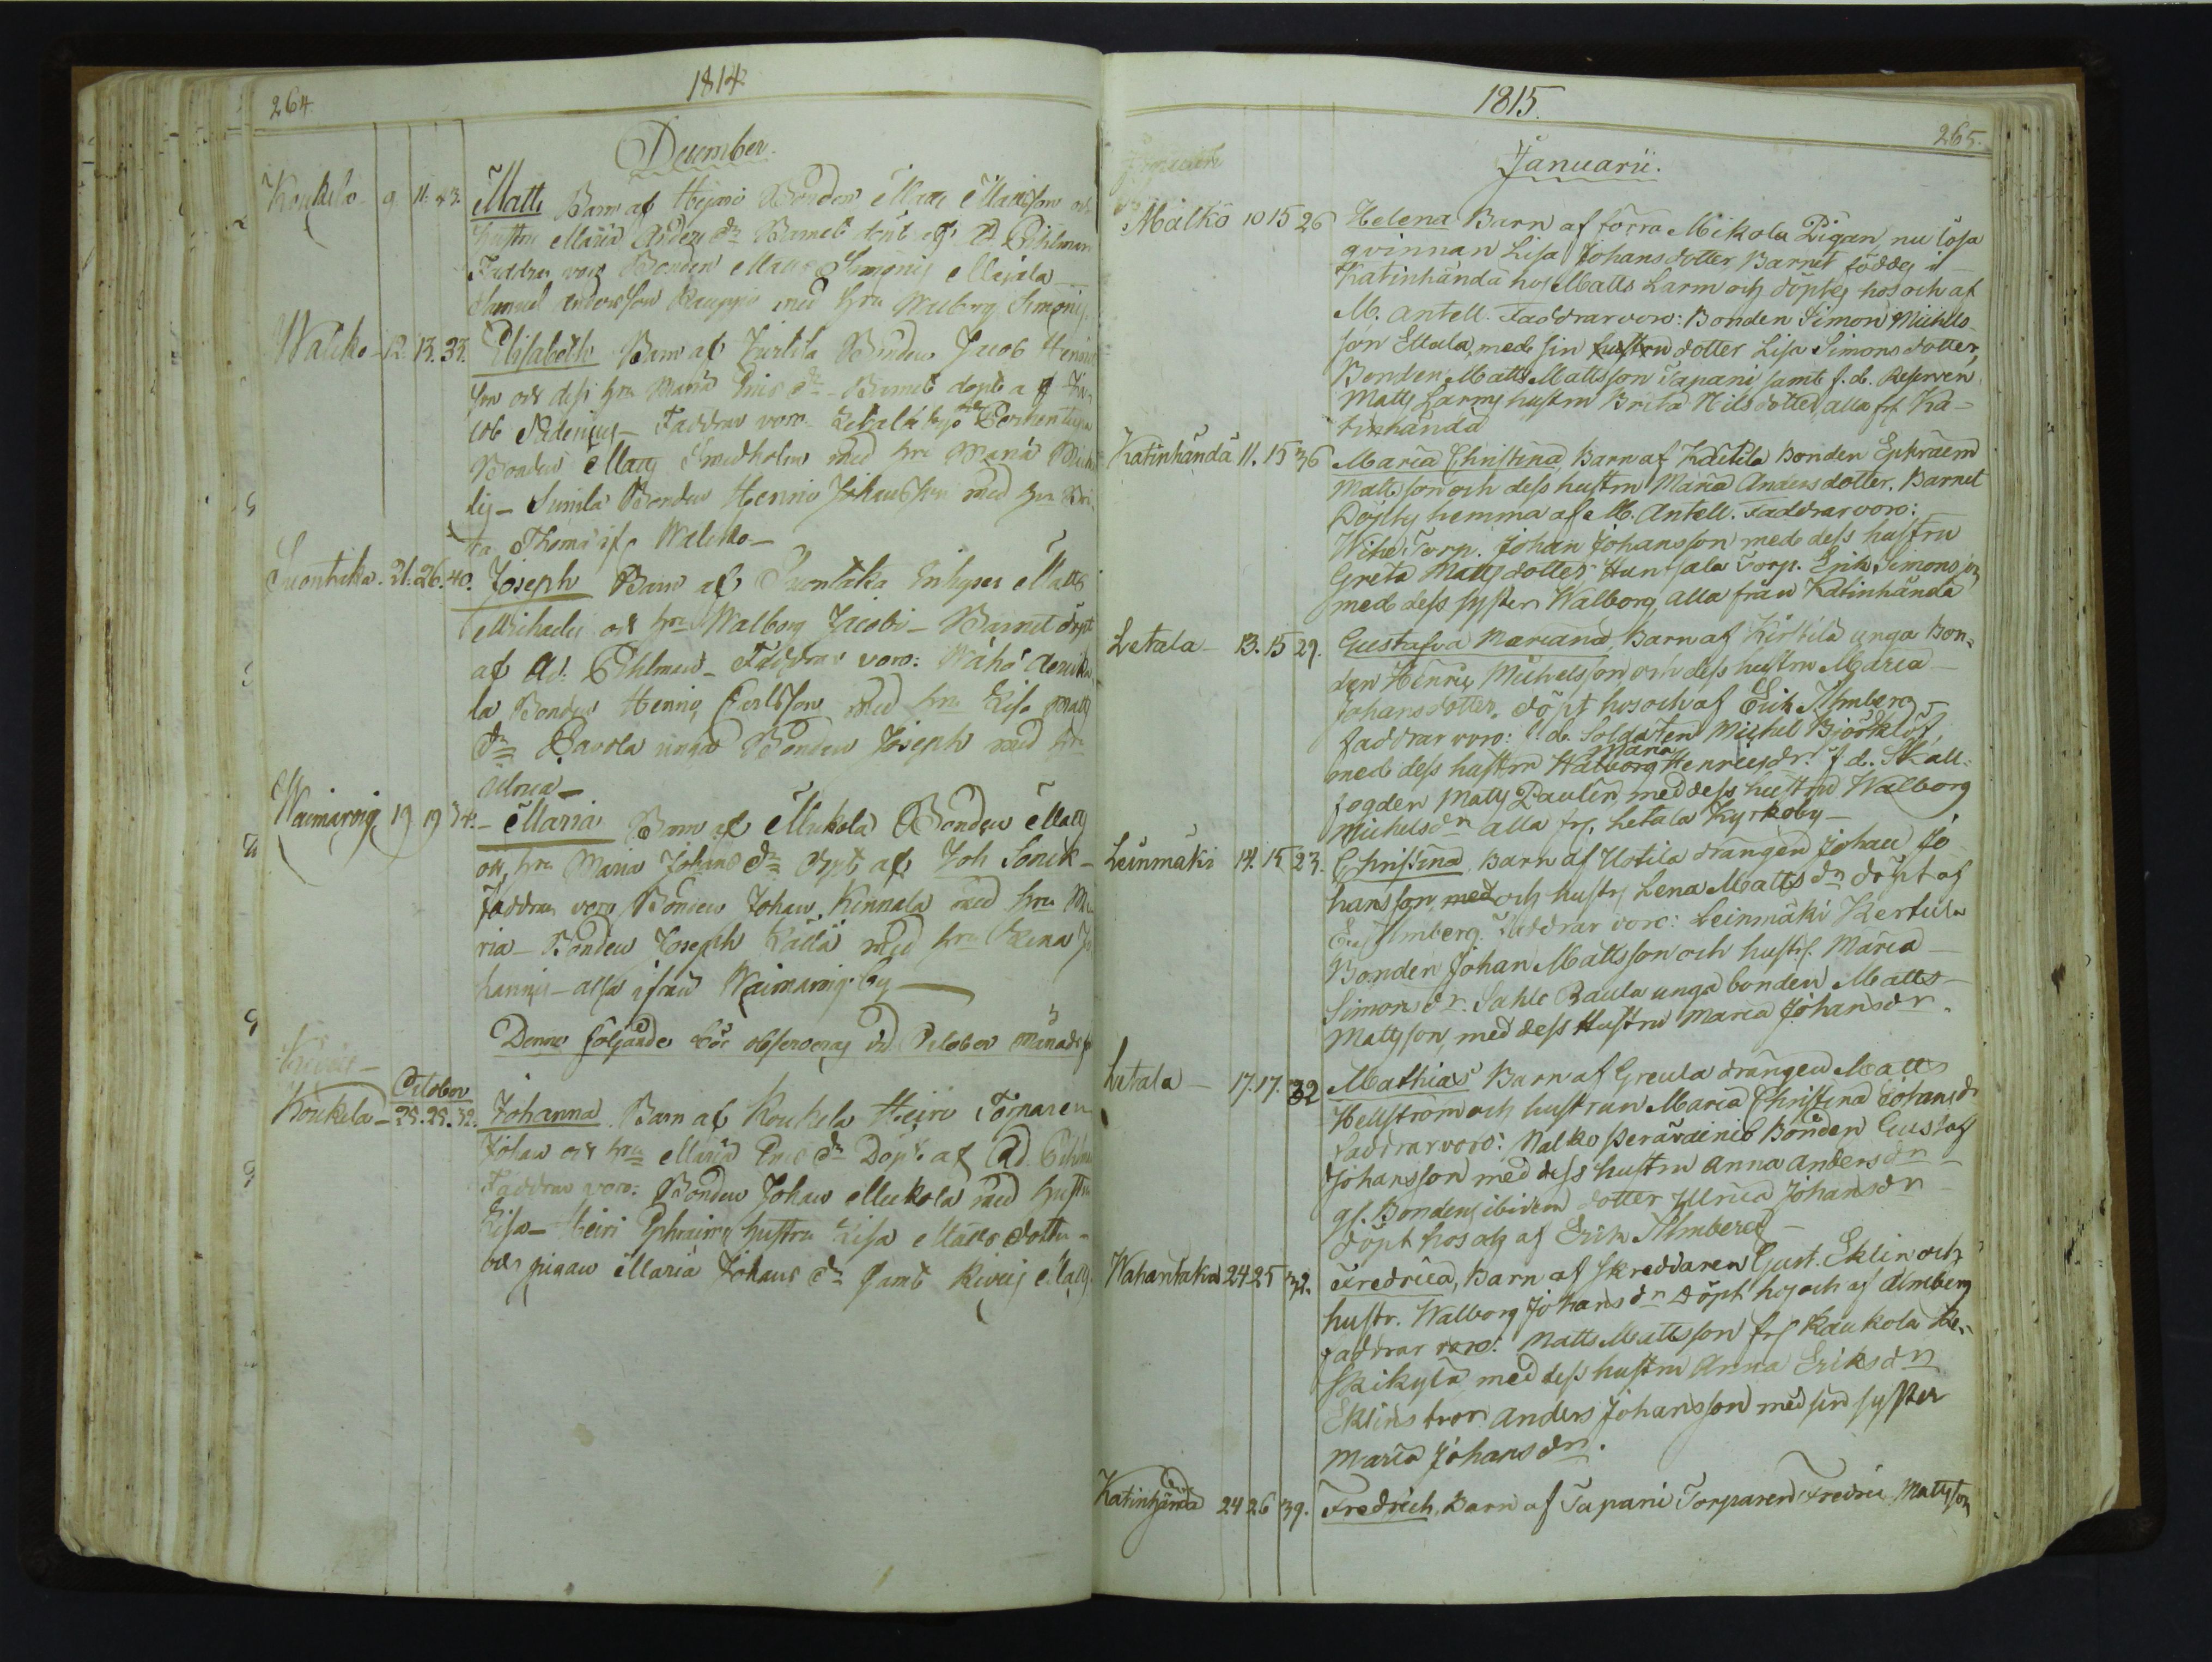 264.
1814
December.
Koukela 9. 11. 23. Matts Barn af Bonden Matts Mattsson och
hustru Maria Anders dr Barnet döpt af A Pihlman
Faddrar voro Bonden Matts Simonis Mejala
Samuel Andersson Kauppi med hru Walborg Simonis.
Walcko 12. 13. 33. Elisabeth Barn af Bonden Jacob Henrics
son och dess hru Maria Erics dr Barnet döpt af Ja-
cob Faddrar voro Letala
Bonden Matts Smedholm med hru Maria Mich
lis Sunila Bonden Henric Johansson med hru Bri-
ta Thomæ ifr Walcko
Suontaka. 21. 26. 40. Joseph Barn af Suontaka Inhyses Matts
Michaelis och hru Walborg Jacobi Barnet döpt
af Ad: Pihlman Faddrar voro: Wähä
la Bonden Henric Carlsson med hru Lisa Matts
dr Pavola unga Bonden Joseph med hru
Ulrica
Waimaroig 19 19 34. Maria Barn af Mikola Bonden Matts
och hru Maria Johans dr döpt af Joh Sonck
Faddrar voro Bonden Johan Kinnala med hru Ma
ria Bonden Joseph Källä med hru Lena Jo
hannis alla ifrån Waimarois by
Denne följande bör observeras vid October Månads
October
Koukela 25. 25. 32. Johanna Barn af Koukela Heiro Torparen
Johan och hru Maria Eric dr Döpt af Ad. Pihlman
Faddrar voro: Bonden Johan Mickola med hustru
Lisa Heiri Ephraims hustru Lisa Matts dotter
och pigan Maria Johans dr samt Matts
1815.
265.
Januarii.
Malko 10 15 26 Helena Barn af förra Mikola Pigan, nu lösa
qvinnan Lisa Johansdotter, Barnet föddes i
Katinhända hos Matts Larm och döptes hos och af
M. Antell. Faddrar voro: Bonden Simon Michels
son Ellala, med sin hustru dotter Lisa Simonsdotter,
Bonden Matts Mattsson Tapani, samt f. d. Reserven
Matts Larms hustru Brita Nilsdotter, alla fr Ka-
tinhända
Katinhända 11. 15 36 Maria Christina Barn af Käetilä Bonden Ephraem
Mattsson och dess hustru Maria Andersdotter. Barnet
Döptes hemma af M. Antell. Faddrar voro:
Wihe Torp. Johan Johansson med dess hustru
Greta Mattsdotter, Hunsala Torp. Erik Simonson
med dess syster Walborg, alla från Katinhända
Letala 13. 15 29. Gustafva Mariana, Barn af Kirstilä unga Bon-
den Henric Michelsson och dess hustru Maria
Johansdotter. döpt hos och af Erik Almberg
faddrar voro: f. d. Soldaten Michel Björklöf,
med dess hustru Walborg Maria Henricsdr. f. d. Skall-
fogden Matts Paulin med dess hustru Walborg
Michelsdr alla fr. Letala Kyrkoby
Leinmäki 14. 15 23. Christina Barn af Uotila drängen Johan Jo
hansson med och hustr Lena Matts dr döpt af
Er. Almberg. Faddrar voro: Leinmäki Kertula
Bonden Johan Mattsson och hustr. Maria
Simonsdr. Sahle Paula unga bonden Matts
Mattsson, med dess Hustru Maria Johansdr.
Letala 17. 17. 32 Mathias Barn af Greula drängen Matts
Hellström och hustrun Maria Christina Johansdr
Faddrar voro: Malko Bonden Gustaf
Johansson med dess hustru Anna Anders dr
gl. Bondens ibidem dotter Ulrica Johansdr
döpt hos och af Erik Almberg
Wahantaka 24 25 32. Fredrica, Barn af skreddaren Gust. Eklin och
hustr. Walborg Johansdr Döpt hos och af Almberg
faddrar voro: Matts Mattsson fr Kaukola Ke-
skikylä med dess hustru Anna Eriksdr
Eklins bror Anders Johansson med sin syster
Maria Johans dr.
Katinhända 24 26 39. Fredrich, Barn af Tapani Torparen Fredric Mattsson